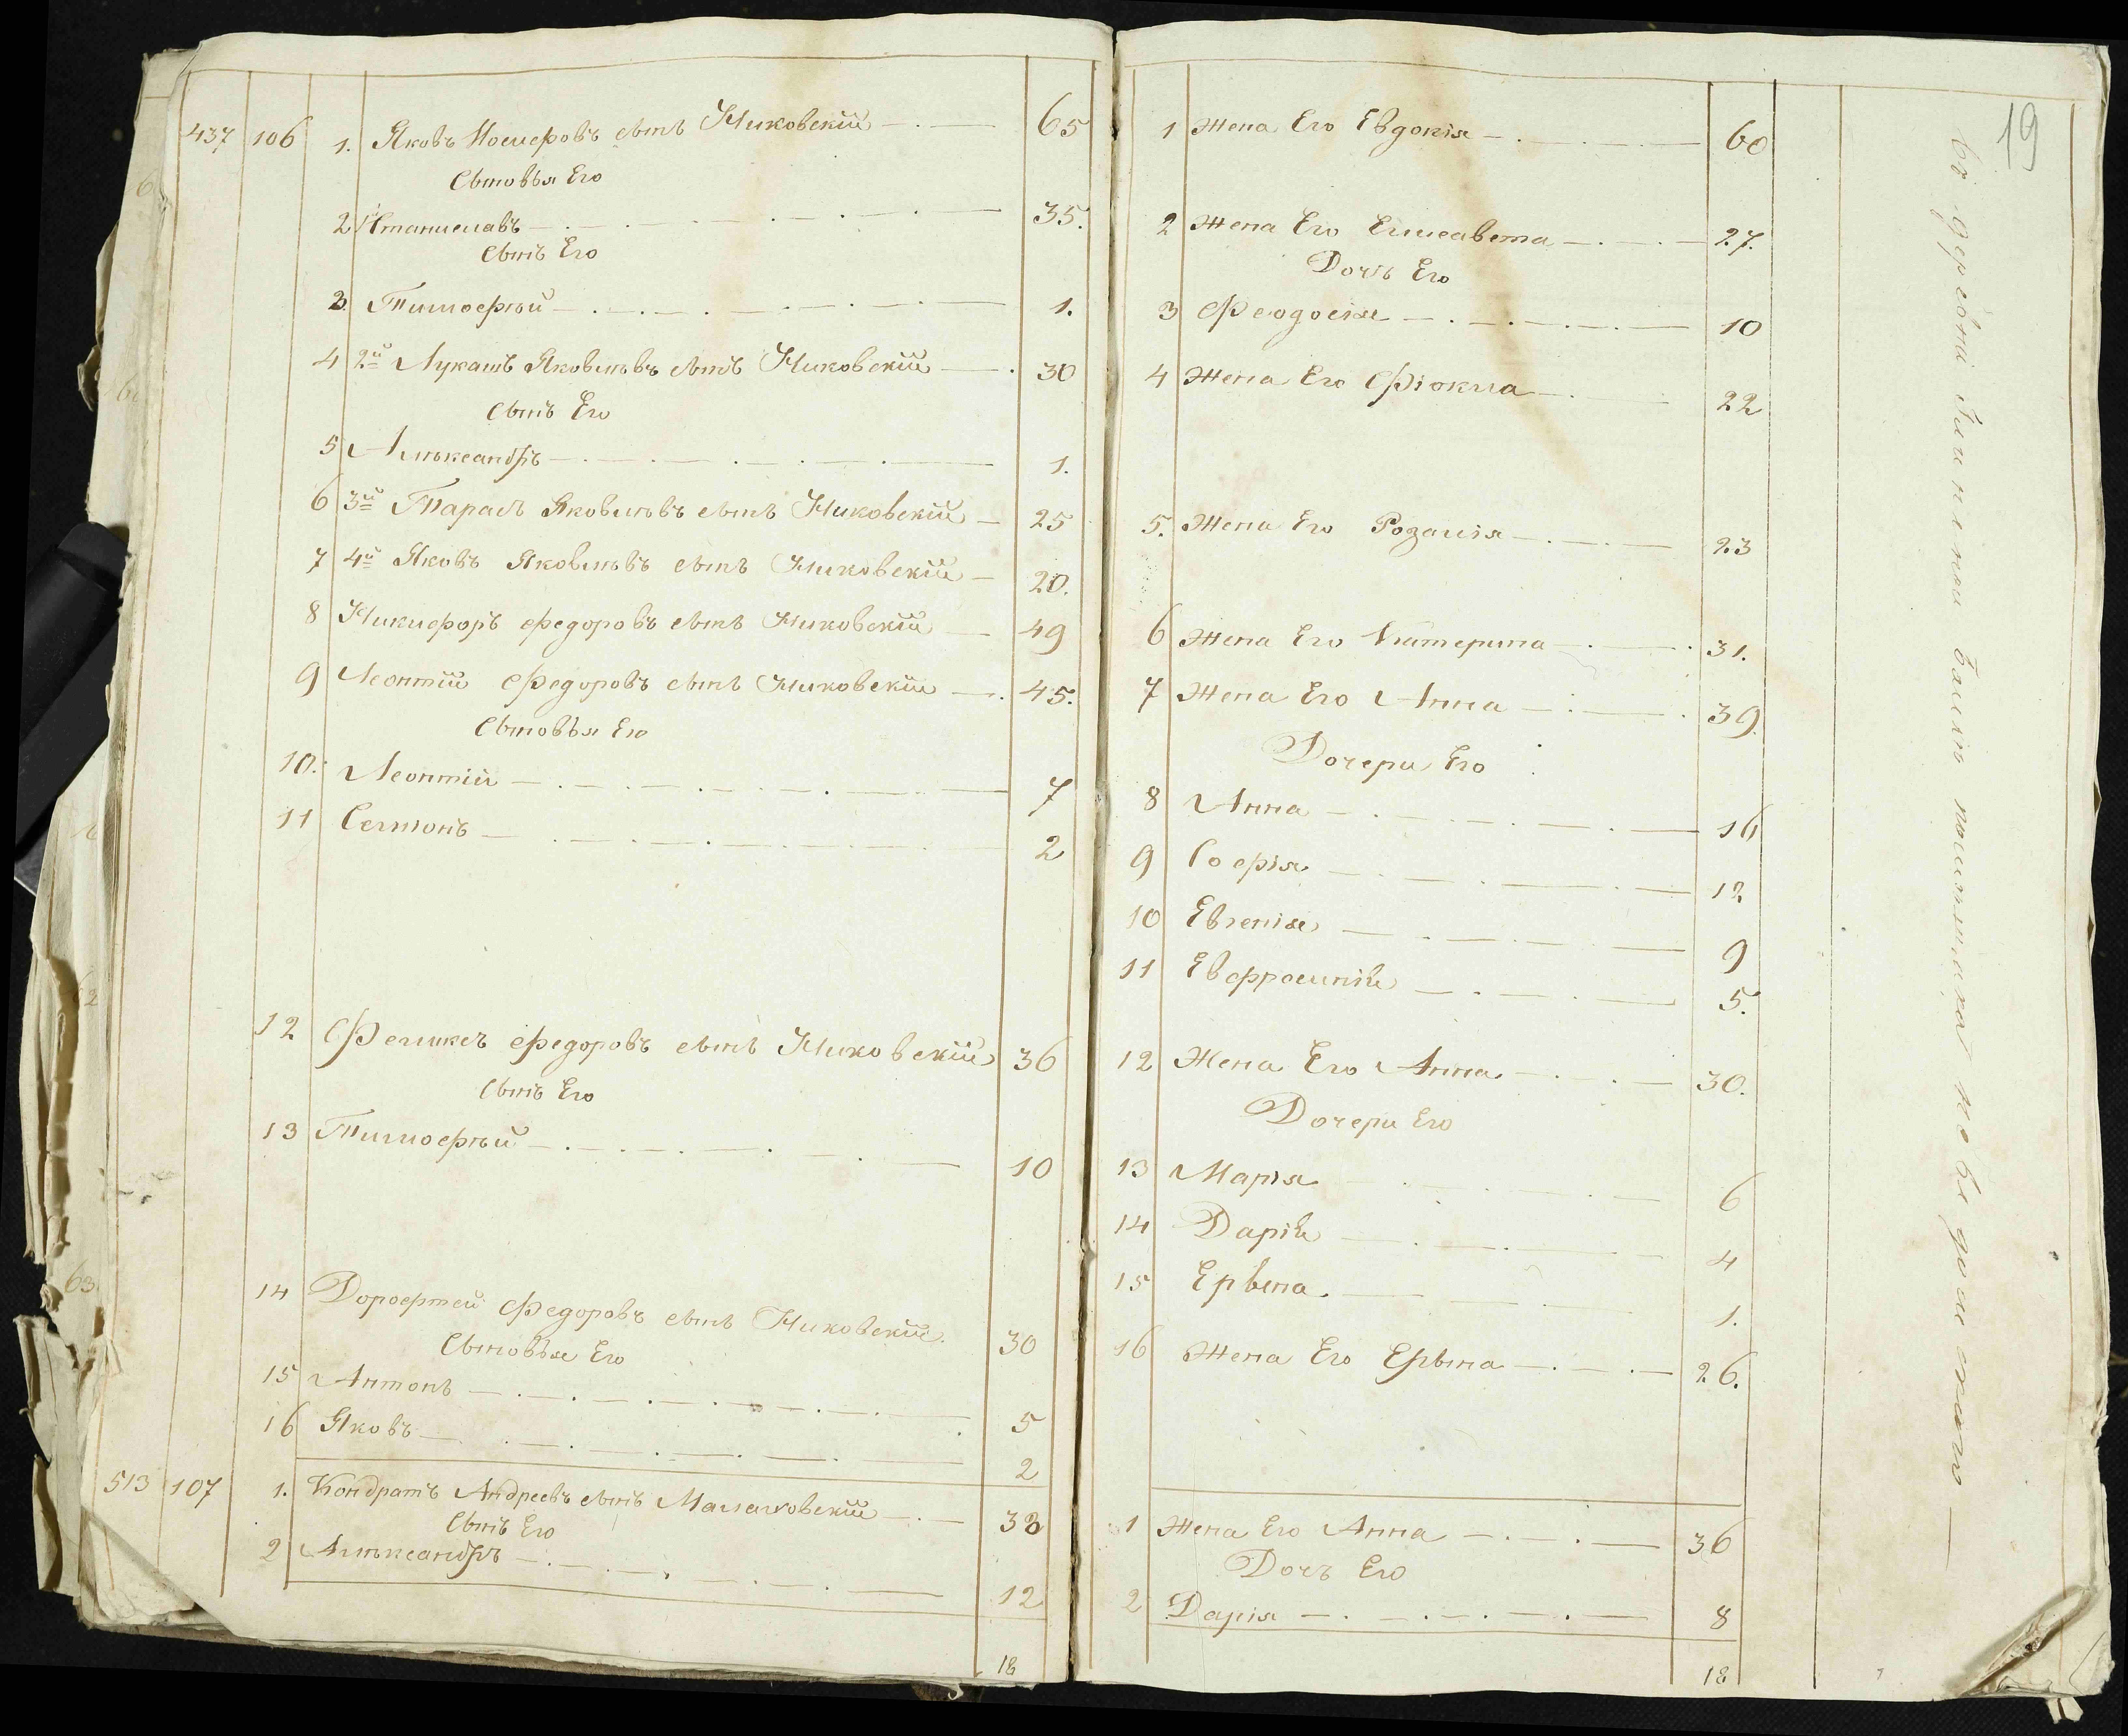 437 106 1. Яковъ Іосифовъ сынъ Киковскій 65
Сыновья Его
2 Станиславъ 35.
сынъ Его
3 Тимофѣй 1.
4 2й Лукашъ Яковлѣвъ сынъ Киковскій 30
сынъ Его
5 Алѣксандръ 1.
6 3й Тарасъ Яковлѣвъ сынъ Киковскій 25
7 4й Яковъ Яковлѣвъ сынъ Киковскій 20.
8 Никифоръ Федоровъ сынъ Киковскій 49
9 Леонтій Федоровъ сынъ Киковскій 45.
Сыновья Его
10. Леонтій 7
11 Семіонъ 2
12 Феликсъ Федоровъ сынъ Киковскій 36
Сынъ Его
13 Тимофѣй 10
14 Дорофтей Федоровъ сынъ Киковскій 30
Сыновья Его
15 Антонъ 5
16 Яковъ 2
513 107 1. Кондратъ Андреевъ сынъ Малаховскій 38
Сынъ Его
2 Алѣксандръ 12
18
19
1 Жена Его Евдокія 60
2 Жена Его Елисавета 27.
Дочь Его
3 Феодосія 10
4 Жена Его Фіокла 22
5. Жена Его Розалія 23
6 Жена Его Катерина 31.
7 Жена Его Анна 39.
Дочери Его
8 Анна 16
9 Софія 12
10 Евгенія 9
11 Евфросинія 5.
12 Жена Его Анна 30.
Дочери Его
13 Марія 6
14 Дарія 4
15 Ерына 1.
16 Жена Его Ерына 26.
1 Жена Его Анна 36
Дочь Его
2 Дарія 8
18